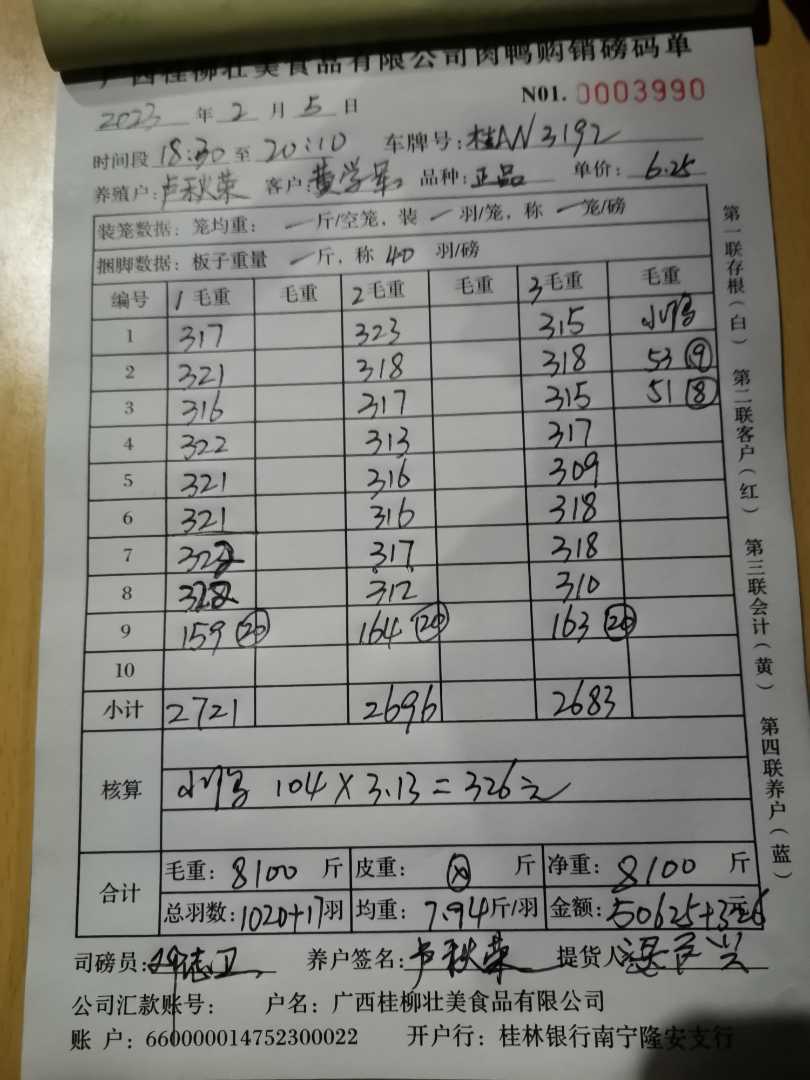 广西桂柳壮美食品有限公司肉鸭购销磅码单
2023 年 2 月 5 日 N01. 0003990
时间段 18:30 至 20:10 车牌号: 桂AN3192
养殖户: 卢秋荣 客户: 黄学军 品种: 正品 单价: 6.25
装笼数据: 笼均重: 一斤/空笼, 装 一 羽/笼, 称 一笼/磅
捆脚数据: 板子重量 一斤, 称 40 羽/磅
编号 1 毛重 毛重 2 毛重 毛重 3 毛重 毛重
1 317 323 315 小鸭
2 321 318 318 53 ⑨
3 316 317 315 51 ⑧
4 322 313 317
5 321 316 309
6 321 316 318
7 322 317 318
8 322 312 310
9 159 ⑳ 164 ⑳ 163 ⑳
10
小计 2721 2696 2683
核算 小鸭 104 X 3.13 = 326元
合计 毛重: 8100 斤 皮重: 斤 净重: 8100 斤
总羽数: 1020+17羽 均重: 7.94斤/羽 金额: 50625+326元
司磅员: 养户签名: 卢秋荣 提货人
公司汇款账号: 户名: 广西桂柳壮美食品有限公司
账 户: 660000014752300022 开户行: 桂林银行南宁隆安支行
第一联存根(白) 第二联客户(红) 第三联会计(黄) 第四联养户(蓝)